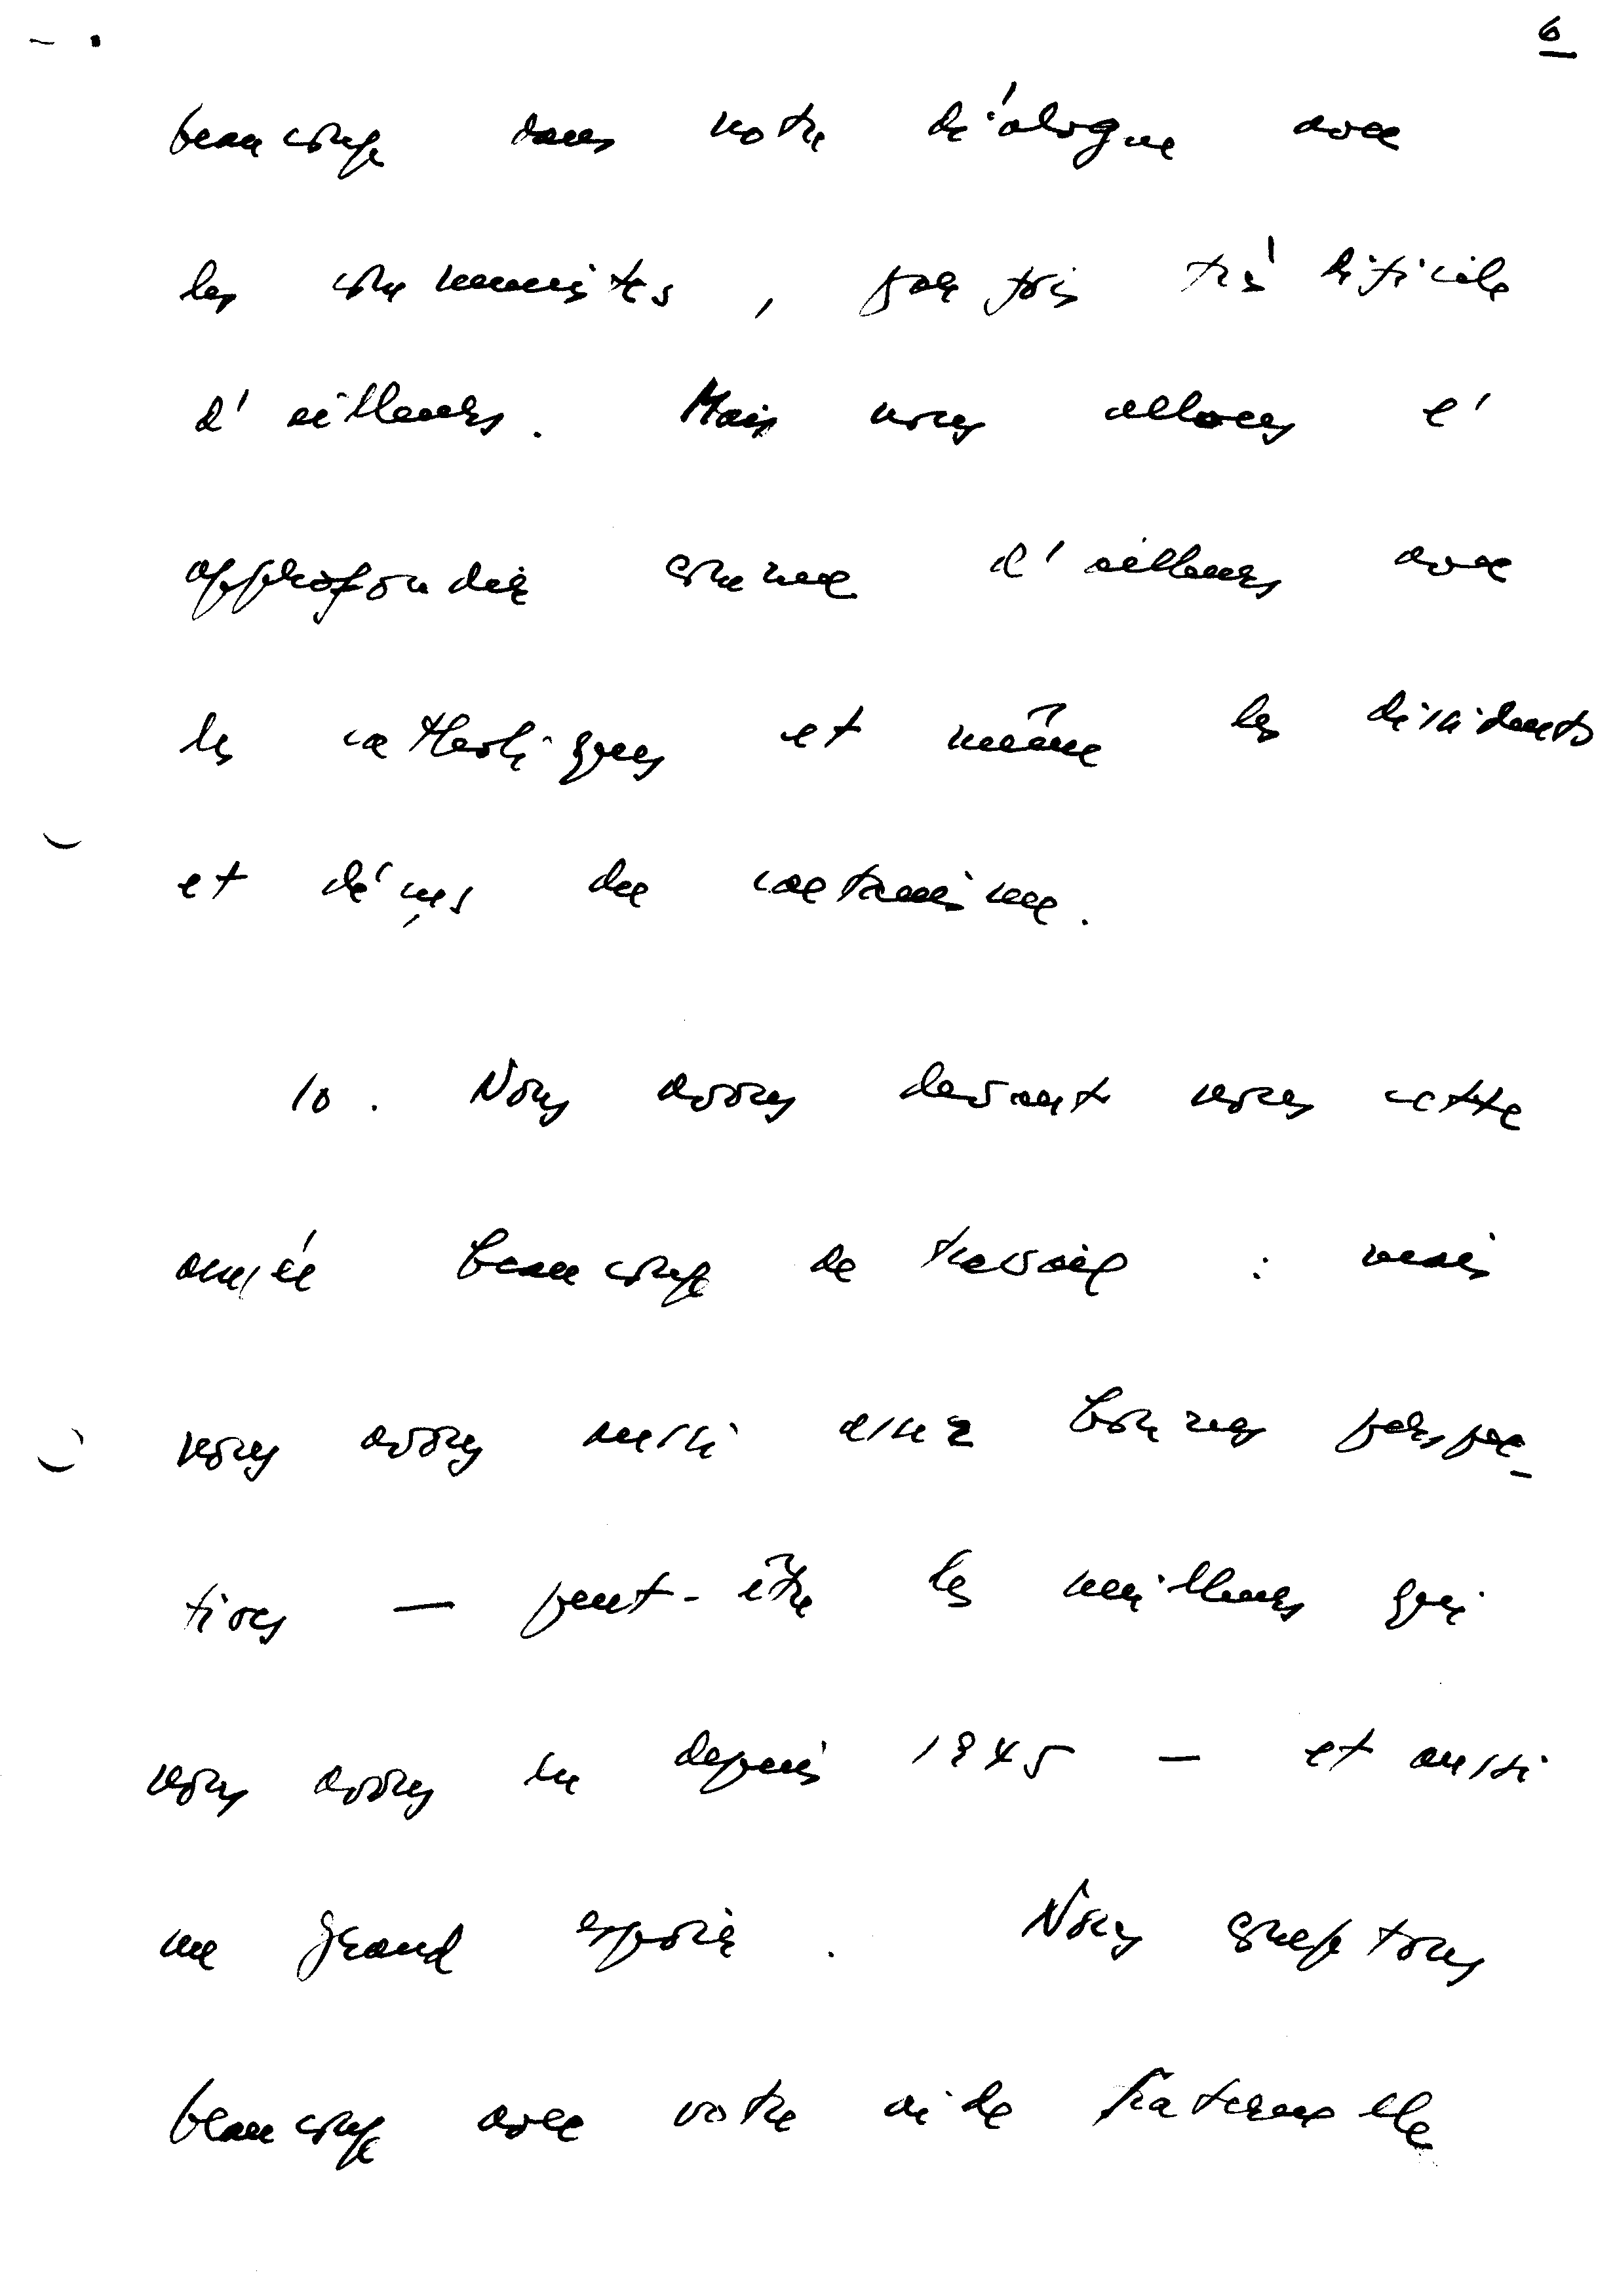 6
beaucoup dans notre diálogue avec
les communistes, par fois trés dificile
d'ailleurs. Mais nous allons l'
approfondir comme d'ailleurs avec
les catholiques et même les dissidents
et déçus du
10. Nous avons devant nous cette
année beaucoup de travail : mais
nous avons aussi assez bonnes perspec-
tives — peut-être les meilleures que
nous avons eu depuis 1945 — et aussi
un grand espoir. Nous comptons
beaucoup avec votre aide fraternelle